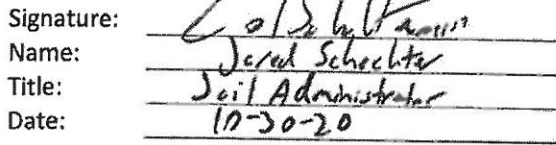 Signature:
Name: Jared Schechter
Title: Jail Administrator
Date: 10-30-20